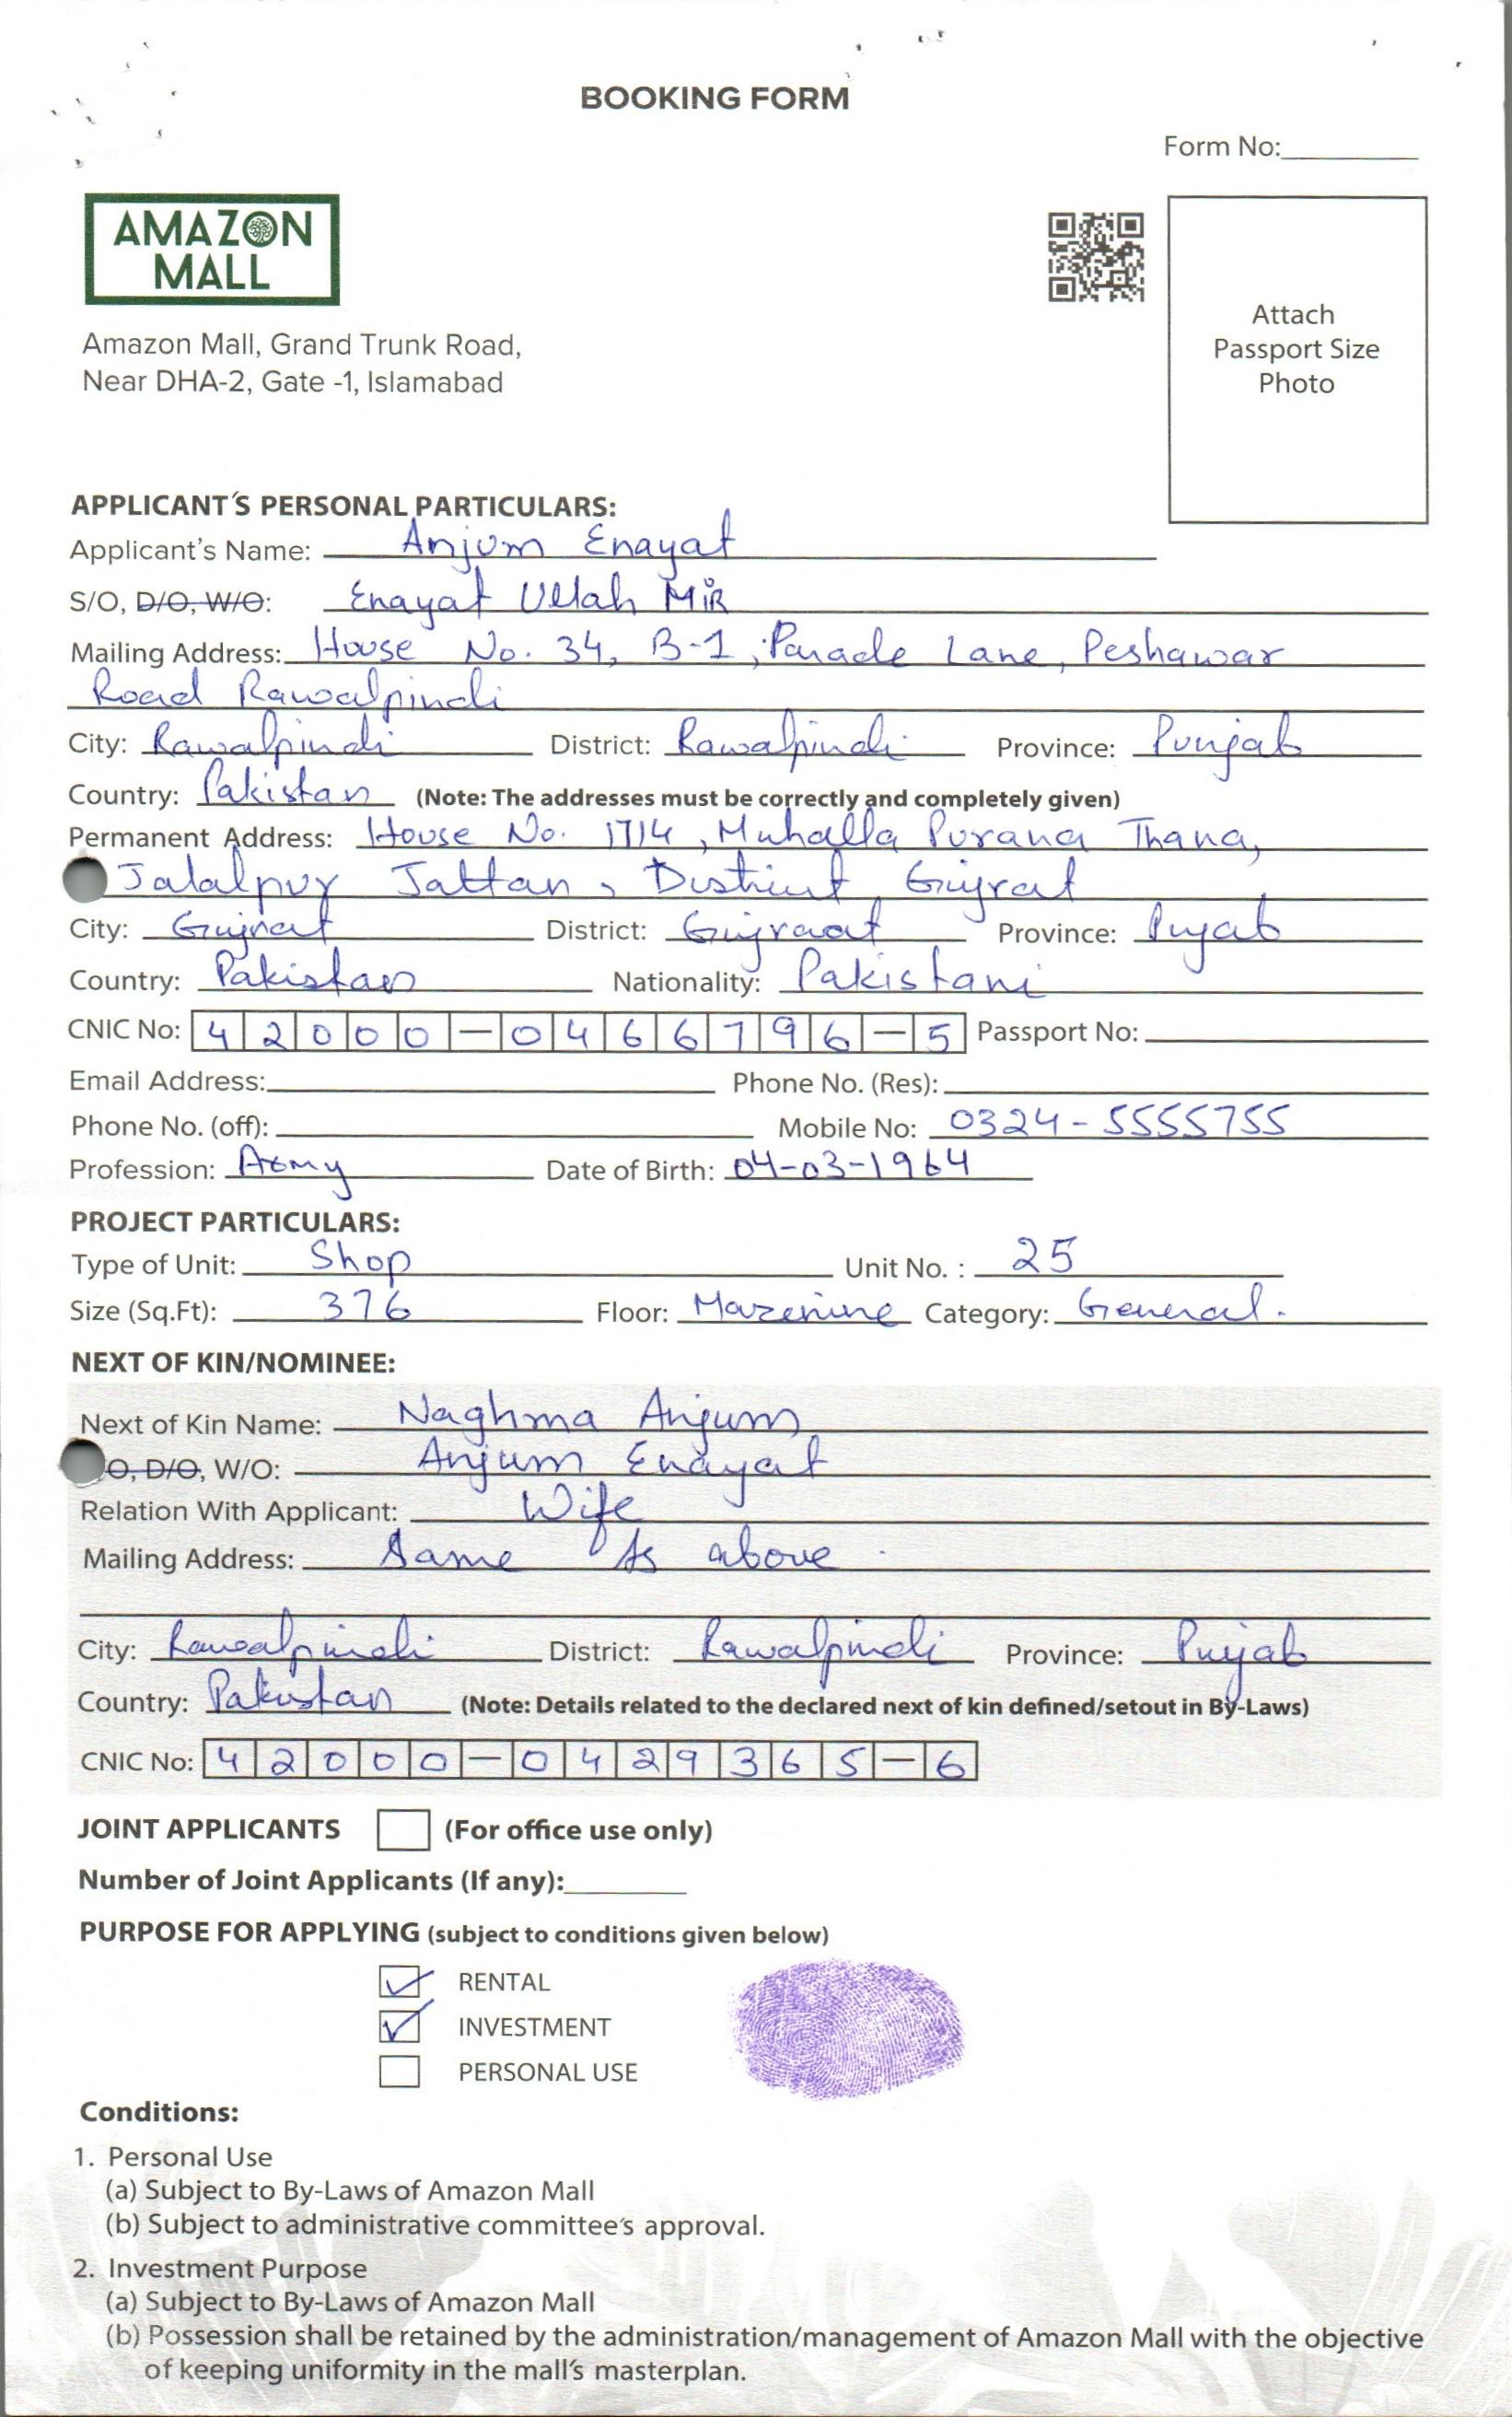 BOOKING FORM
Form No:
AMAZON
MALL
Amazon Mall, Grand Trunk Road,
Near DHA-2, Gate -1, Islamabad
Attach
Passport Size
Photo
APPLICANT'S PERSONAL PARTICULARS:
Applicant's Name: Anjum Enayat
S/O, D/O, W/O: Enayat Ullah MiR
Mailing Address: House No. 34, B-1, Parade Lane, Peshawar
Road Rawalpindi
City: Rawalpindi District: Rawalpindi Province: Punjab
Country: Pakistan (Note: The addresses must be correctly and completely given)
Permanent Address: House No. 1714, Muhalla Purana Thana,
Jalalpur Jattan, District Gujrat
City: Gujrat District: Gujraat Province: Pujab
Country: Pakistan Nationality: Pakistani
CNIC No: 42000-0466796-5 Passport No:
Email Address: Phone No. (Res):
Phone No. (off): Mobile No: 0324-5555755
Profession: Army Date of Birth: 04-03-1964
PROJECT PARTICULARS:
Type of Unit: Shop Unit No. : 25
Size (Sq.Ft): 376 Floor: Mazenine Category: General.
NEXT OF KIN/NOMINEE:
Next of Kin Name: Naghma Anjum
O, D/O, W/O: Anjum Enayat
Relation With Applicant: Wife
Mailing Address: Same As above
City: Rawalpindi District: Rawalpindi Province: Pujab
Country: Pakistan (Note: Details related to the declared next of kin defined/setout in By-Laws)
CNIC No: 42000-0429365-6
JOINT APPLICANTS (For office use only)
Number of Joint Applicants (If any):
PURPOSE FOR APPLYING (subject to conditions given below)
RENTAL
INVESTMENT
PERSONAL USE
Conditions:
1. Personal Use
(a) Subject to By-Laws of Amazon Mall
(b) Subject to administrative committee's approval.
2. Investment Purpose
(a) Subject to By-Laws of Amazon Mall
(b) Possession shall be retained by the administration/management of Amazon Mall with the objective
of keeping uniformity in the mall's masterplan.